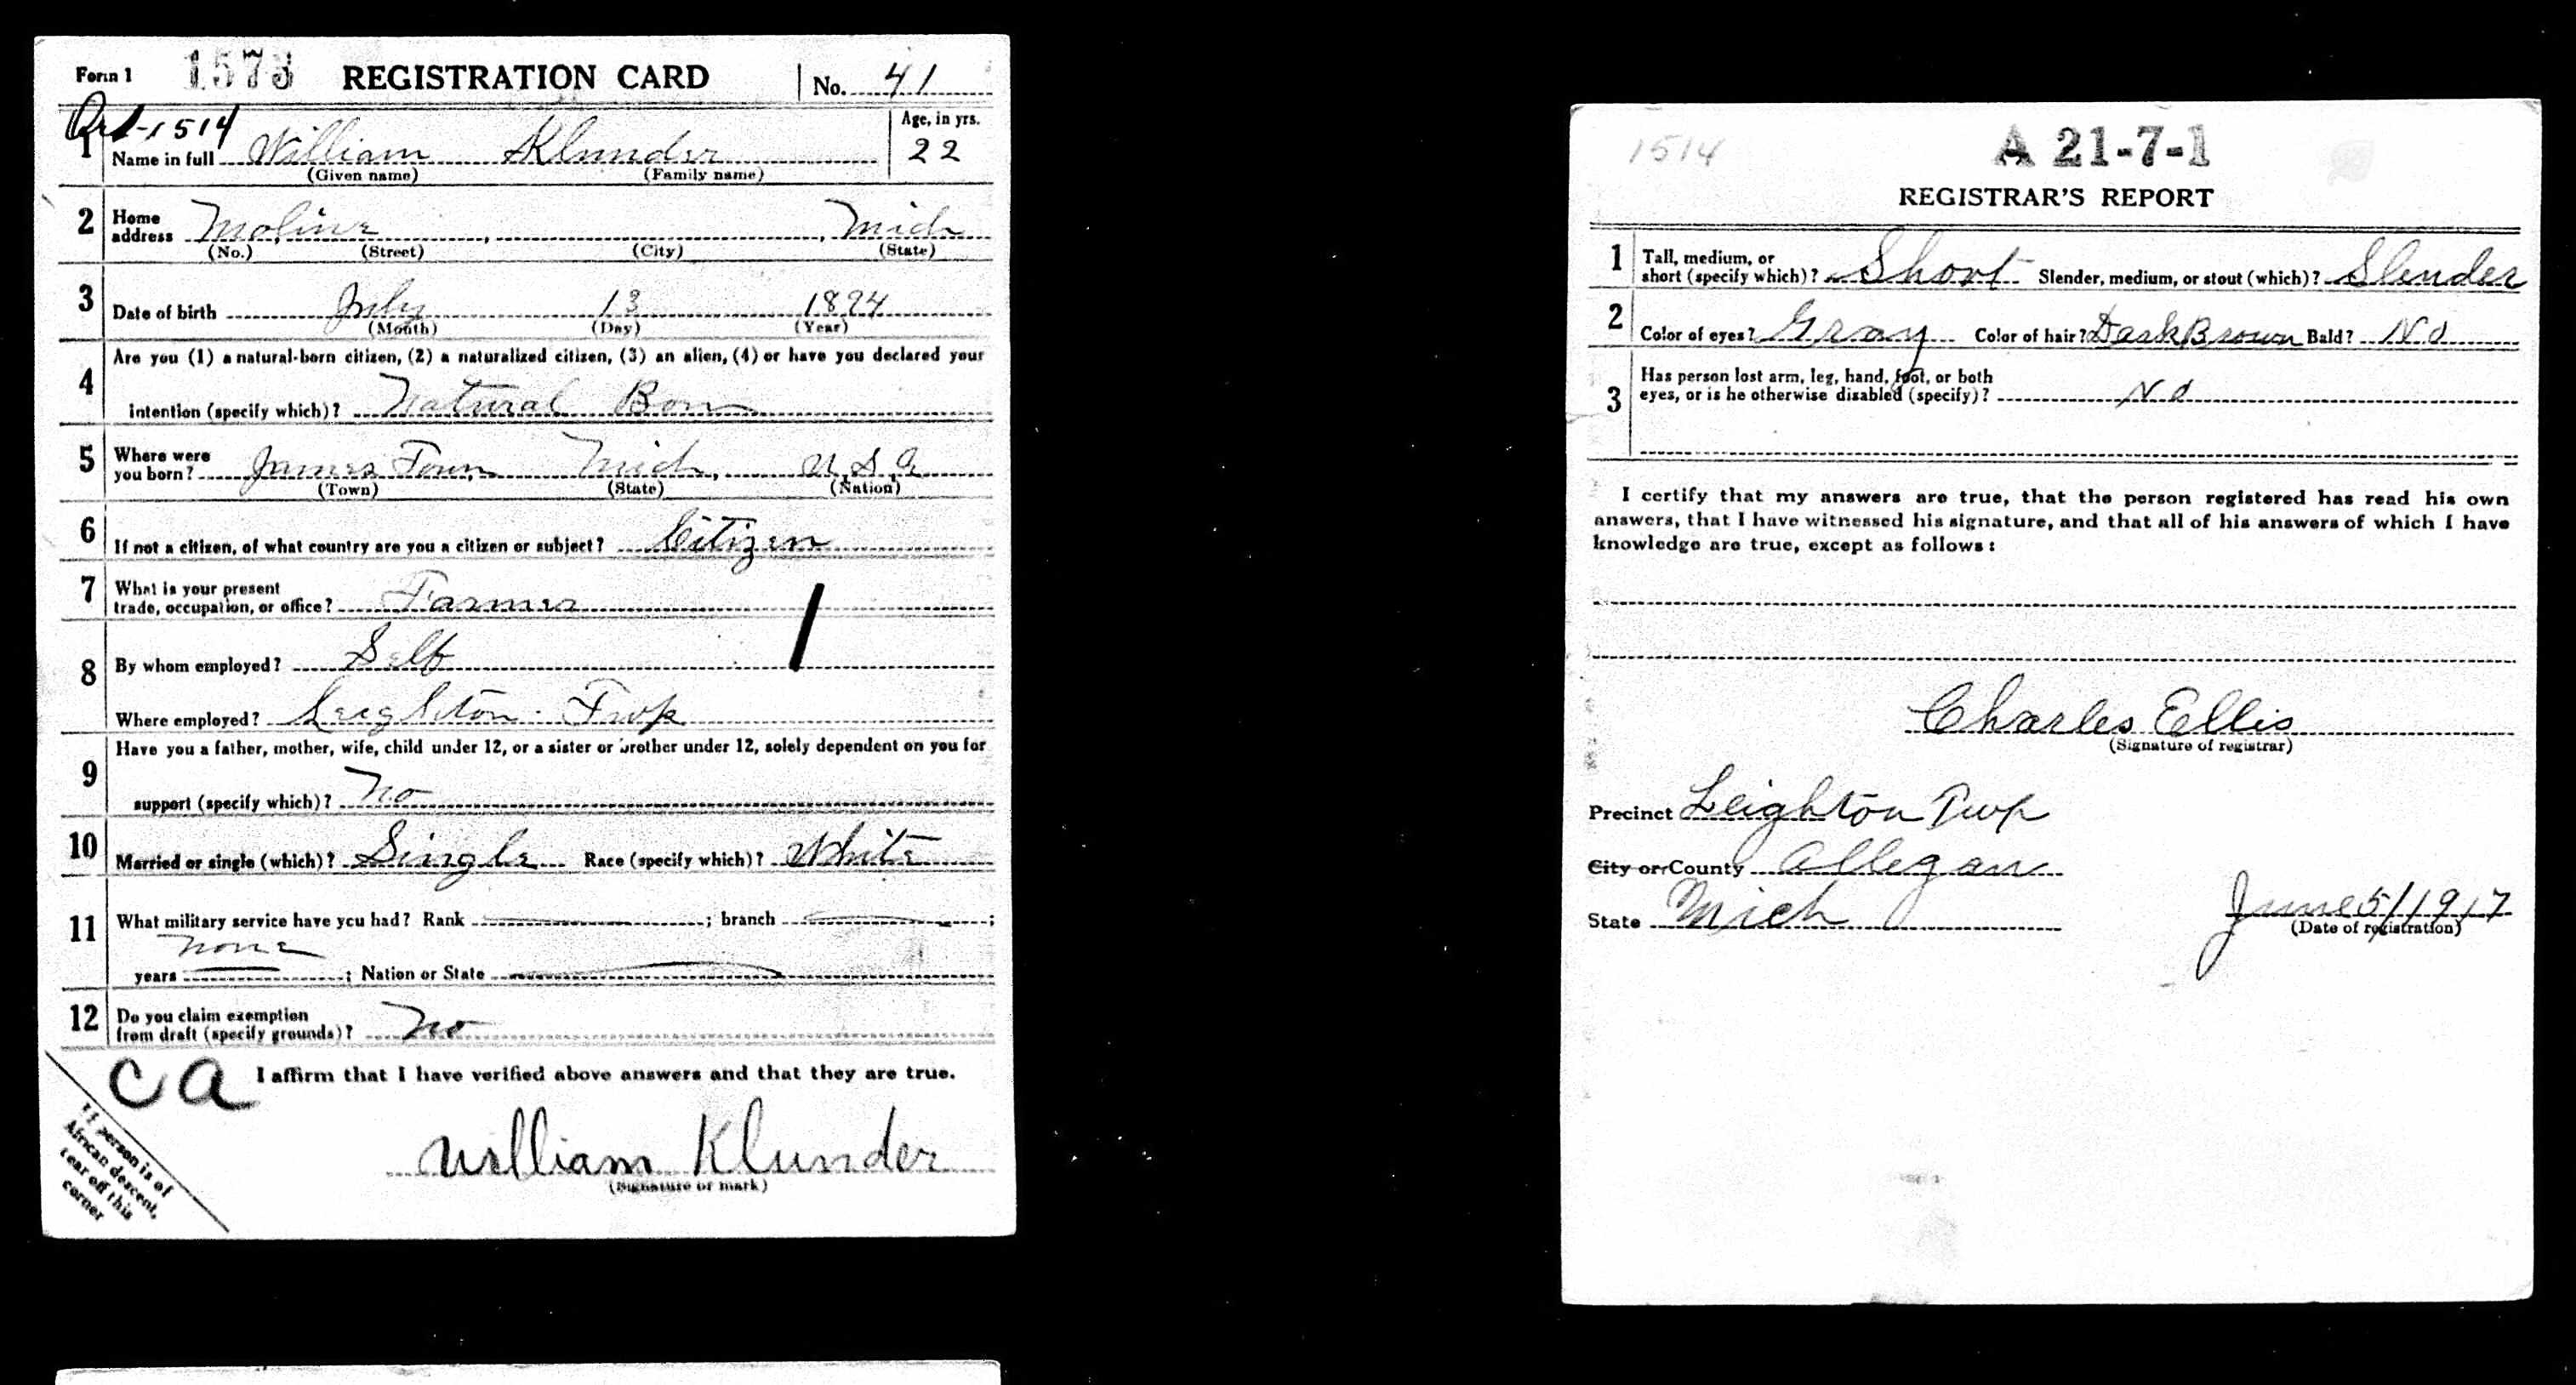 Form 1 1573 REGISTRATION CARD No. 41
Ord-1514
1 Name in full William Klunder Age, in yrs. 22
(Given name) (Family name)
2 Home address Moline, , Mich
(No.) (Street) (City) (State)
3 Date of birth July 13 1894
(Month) (Day) (Year)
Are you (1) a natural-born citizen, (2) a naturalized citizen, (3) an alien, (4) or have you declared your
4 intention (specify which)? Natural Born
5 Where were you born? James Town, Mich, U S A
(Town) (State) (Nation)
6 If not a citizen, of what country are you a citizen or subject? Citizen
7 What is your present trade, occupation, or office? Farmer
8 By whom employed? Self
Where employed? Leighton Twp
Have you a father, mother, wife, child under 12, or a sister or brother under 12, solely dependent on you for
9 support (specify which)? No
10 Married or single (which)? Single Race (specify which)? White
11 What military service have you had? Rank ; branch ;
none
years ; Nation or State
12 Do you claim exemption from draft (specify grounds)? No
CA I affirm that I have verified above answers and that they are true.
If person is of
African descent,
tear off this
corner
William Klunder
(Signature or mark)
1514 A 21-7-1
REGISTRAR'S REPORT
1 Tall, medium, or short (specify which)? Short Slender, medium, or stout (which)? Slender
2 Color of eyes? Gray Color of hair? Dark Brown Bald? No
3 Has person lost arm, leg, hand, foot, or both
eyes, or is he otherwise disabled (specify)? No
I certify that my answers are true, that the person registered has read his own
answers, that I have witnessed his signature, and that all of his answers of which I have
knowledge are true, except as follows:
Charles Ellis
(Signature of registrar)
Precinct Leighton Twp
City or County Allegan
State Mich June 5/1917
(Date of registration)